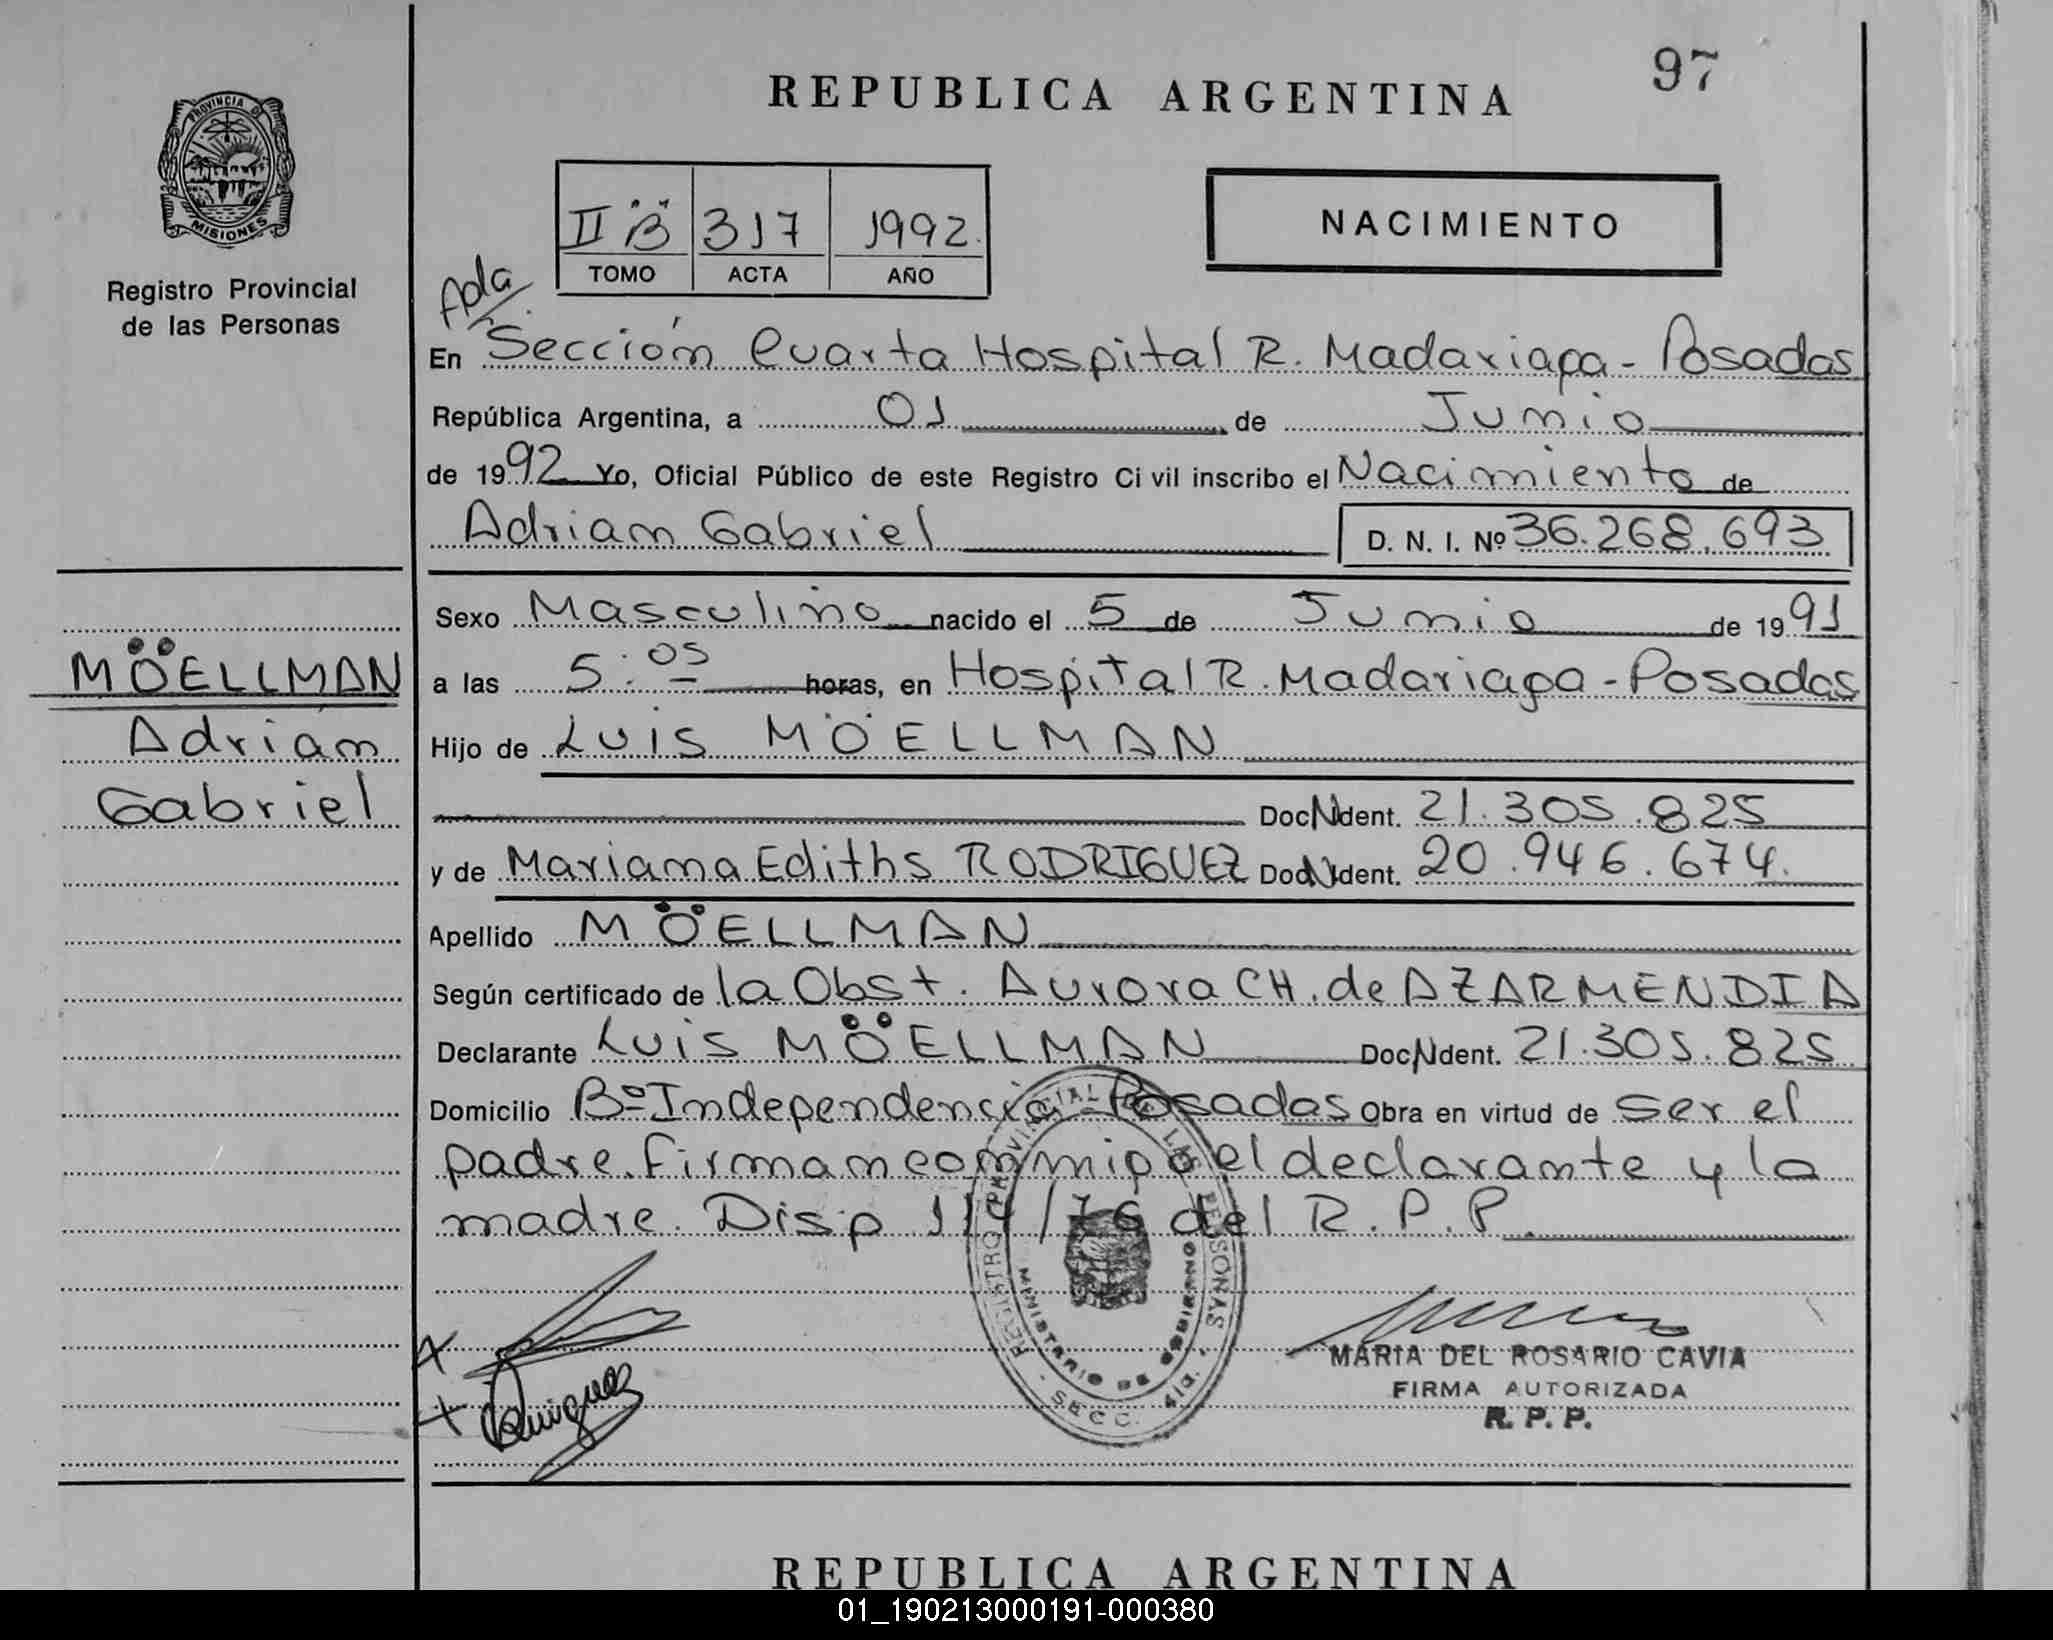 97
REPUBLICA ARGENTINA
PROVINCIA DE
MISIONES
Registro Provincial
de las Personas
II "B" 317 1992.
TOMO ACTA AÑO
NACIMIENTO
En Sección Cuarta Hospital R. Madariaga - Posadas
República Argentina, a 01 de Junio
de 1992 Yo, Oficial Público de este Registro Ci vil inscribo el Nacimiento de
Adrian Gabriel D. N. I. Nº 36.268.693
Sexo Masculino nacido el 5 de Junio de 1991
MÖELLMAN
Adrián
Gabriel
a las 5:05 horas, en Hospital R. Madariaga - Posadas
Hijo de Luis MÖELLMAN
Doc. Ident. 21.305.825
y de Mariana Ediths RODRIGUEZ Doc. Ident. 20.946.674.
Apellido MÖELLMAN
Según certificado de la Obst. Aurora CH. de AZARMENDIA
Declarante Luis MÖELLMAN Doc. Ident. 21.305.825
Domicilio Bº Independencia - Posadas Obra en virtud de ser el
padre. Firman conmigo el declarante y la
madre. Disp 114/76 del R.P.P.
REGISTRO PROVINCIAL DE LAS PERSONAS
MINISTERIO DE GOBIERNO
SECC. 4ta.
MARIA DEL ROSARIO CAVIA
FIRMA AUTORIZADA
R. P. P.
REPUBLICA ARGENTINA
01_190213000191-000380